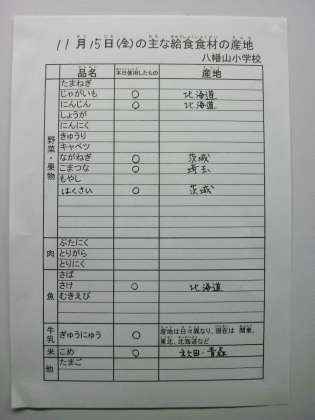 11月15日(金)の主な給食食材の産地
八幡山小学校
品名 本日使用したもの 産地
野菜・果物
たまねぎ
じゃがいも ○ 北海道
にんじん ○ 北海道
しょうが
にんにく
きゅうり
キャベツ
ながねぎ ○ 茨城
こまつな ○ 埼玉
もやし
はくさい ○ 茨城
肉
ぶたにく
とりがら
とりにく
魚
さば
さけ ○ 北海道
むきえび
牛乳 ぎゅうにゅう ○ 産地は日々異なり、現在は 関東、
東北、北海道など
米 こめ ○ 秋田・青森
他 たまご